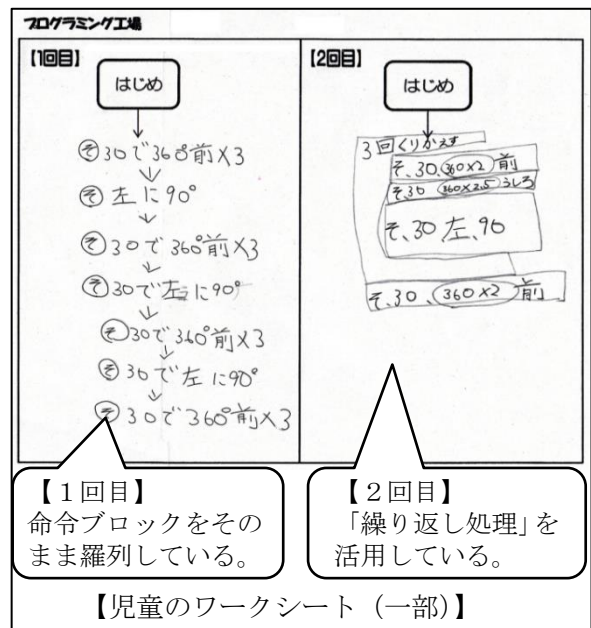 プログラミング工場
【1回目】
はじめ
そ 30で360°前×3
そ 左に90°
そ 30で360°前×3
そ 30で左に90°
そ 30で360°前×3
そ 30で左に90°
そ 30で360°前×3
【2回目】
はじめ
3回くりかえす
そ、30、360×2 前
そ、30 360×2.5 うしろ
そ、30左、90
そ、30、360×2 前
【１回目】
命令ブロックをその
まま羅列している。
【２回目】
「繰り返し処理」を
活用している。
【児童のワークシート（一部）】